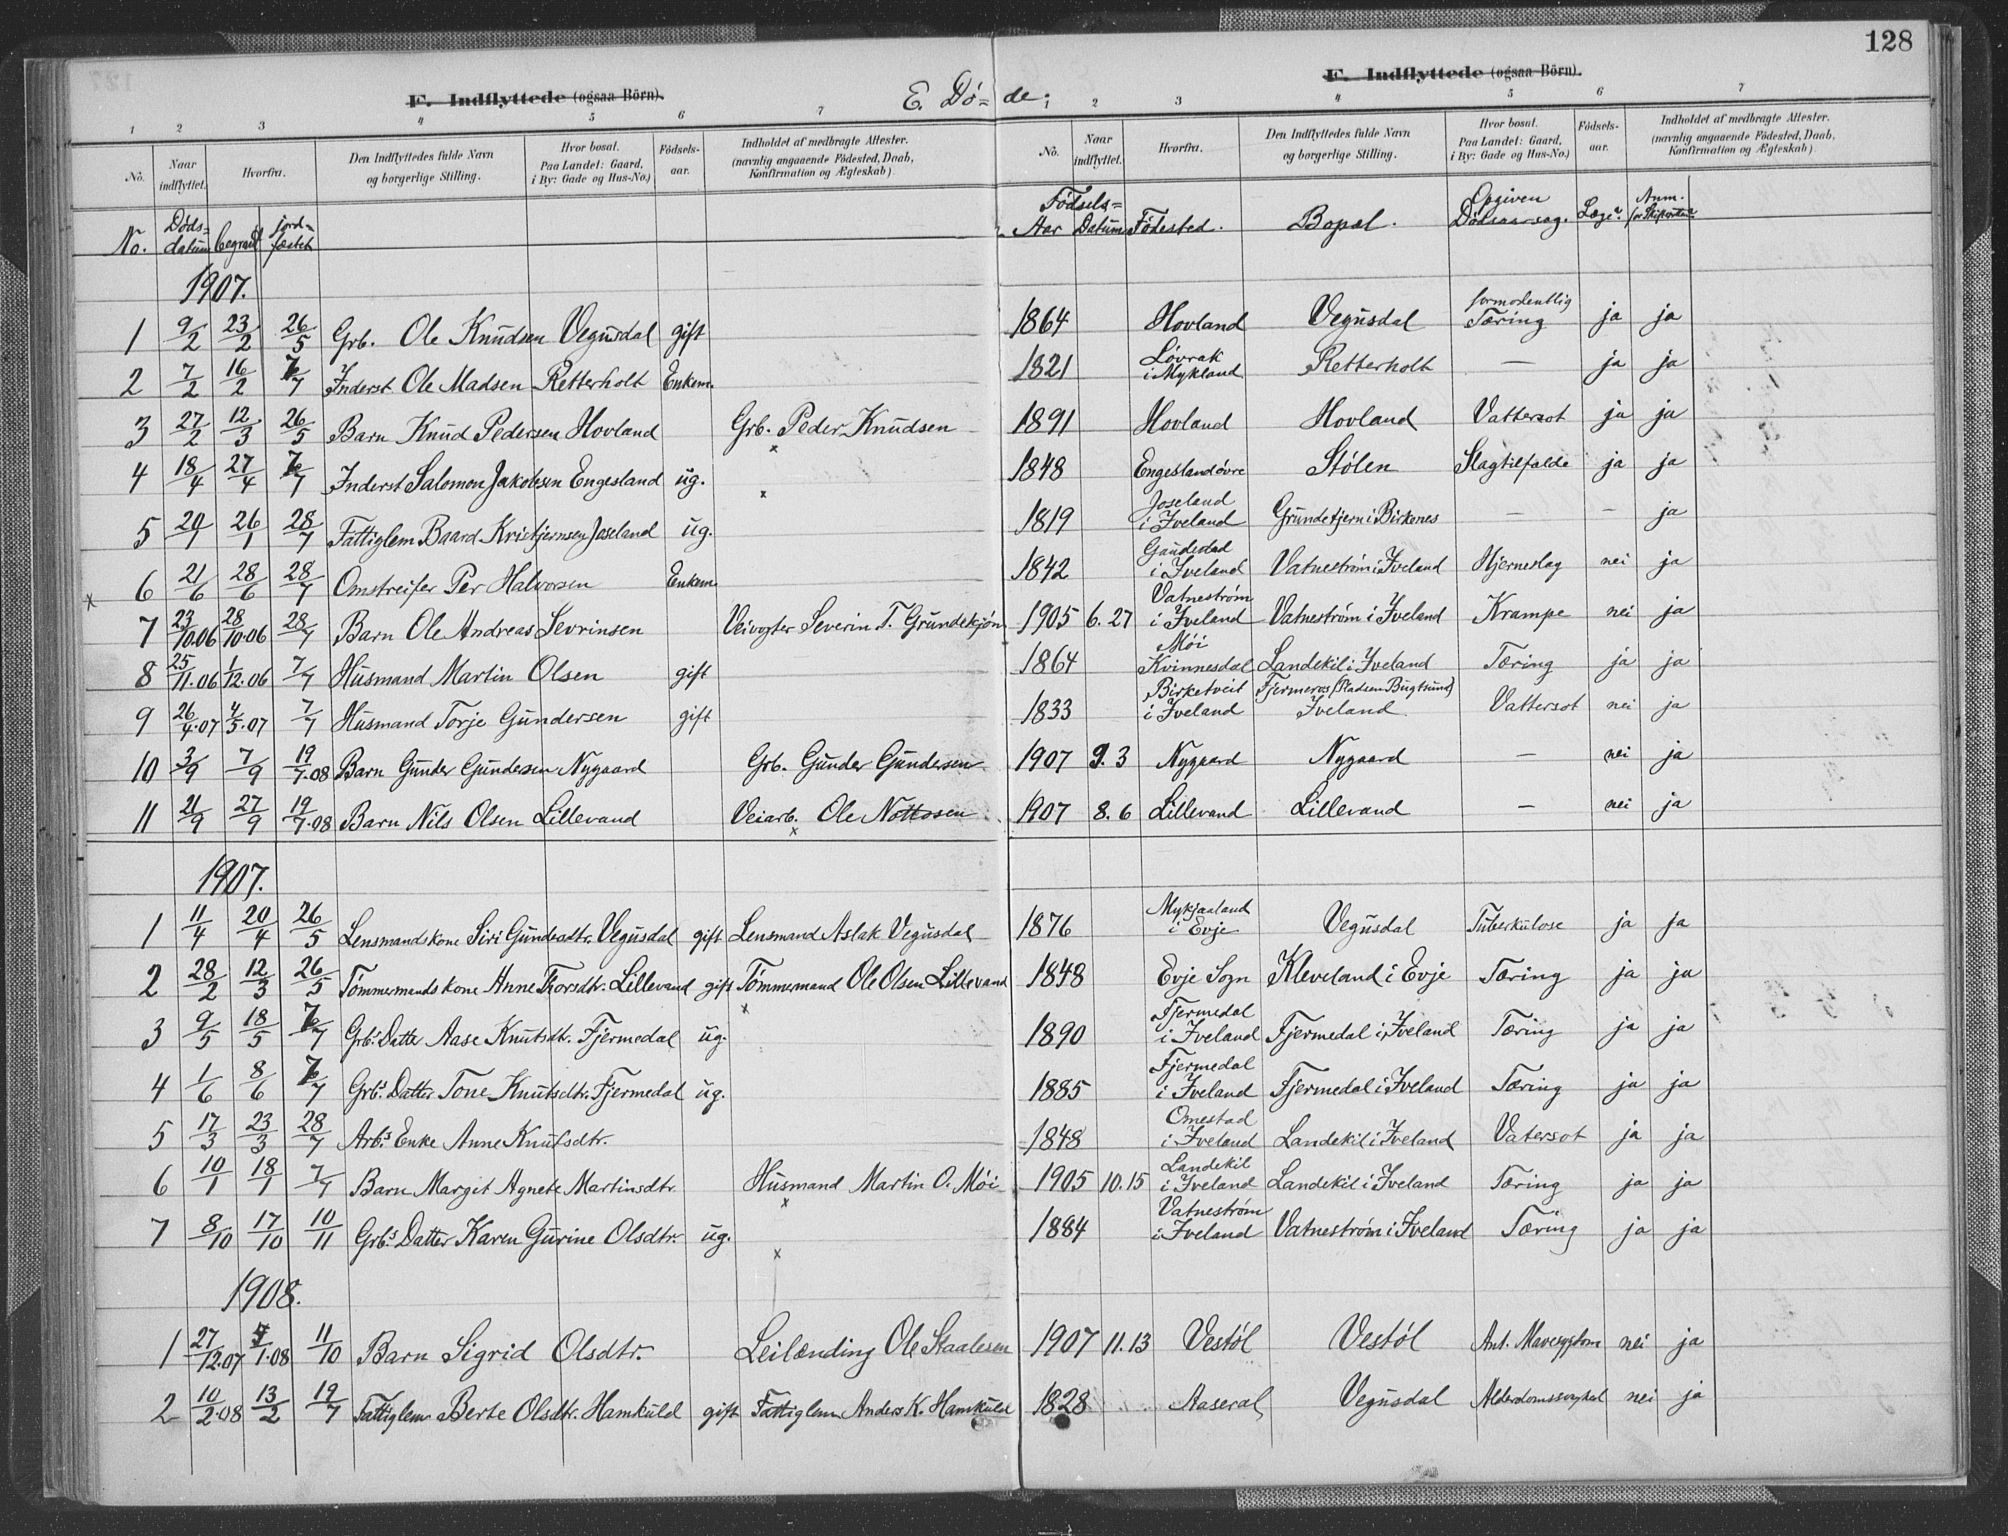 128
F. Indflyttede (ogsaa Börn).
E. Dö=de.
F. Indflyttede (ogsaa Börn).
1 2 3 4 5 6 7
1 2 3 4 5 6 7
No. Naar indflyttet. Hvorfra. Den Indflyttedes fulde Navn og borgerlige Stilling. Hvor bosat. Paa Landet: Gaard, i By: Gade og Hus-No.) Födsels-aar. Indholdet af medbragte Attester. (navnlig angaaende Födested, Daab, Konfirmation og Ægteskab).
No. Naar indflyttet. Hvorfra. Den Indflyttedes fulde Navn og borgerlige Stilling. Hvor bosat. Paa Landet: Gaard, i By: Gade og Hus-No.) Födsels-aar. Indholdet af medbragte Attester. (navnlig angaaende Födested, Daab, Konfirmation og Ægteskab).
No. Döds=datum begravet jord=fæstet Födsels= Aar Datum Födested. Bopæl. Opgiven Dødsaarsag. Læge? Anm. for Skifteret?
1907.
1 9/2 23/2 26/5 Grb. Ole Knudsen Vegusdal gift 1864 Hovland Vegusdal formodentlig Tæring ja ja
2 7/2 16/2 7/7 Inderst Ole Madsen Retterholt Enkem. 1821 Løvrak i Mykland Retterholt — ja ja
3 27/2 12/3 26/5 Barn Knud Pedersen Hovland Grb. Peder Knudsen 1891 Hovland Hovland Vattersot ja ja
4 18/4 27/4 7/7 Inderst Salomon Jakobsen Engesland ug. 1848 Engesland øvre Stölen Slagtilfalde ja ja
5 20/1 26/1 28/7 Fattiglem Baard Kristjernsen Joseland ug. 1819 Joseland i Iveland Grundetjern i Birkenes — — ja
6 21/6 28/6 28/7 Omstreifer Per Halvorsen Enkem. 1842 Gaudestad i Iveland Vatneström i Iveland Hjerneslag nei ja
7 23/10.06 28/10.06 28/7 Barn Ole Andreas Sevrinsen Veivogter Severin T. Grundekjön 1905 6.27 Vatneström i Iveland Vatneström i Iveland Krampe nei ja
8 25/11.06 1/12.06 7/7 Husmand Martin Olsen gift 1864 Möi Kvinnesdal Landekil i Iveland Tæring ja ja
9 26/4.07 4/5.07 7/7 Husmand Torje Gundersen gift 1833 Birketveit i Iveland Fjermeros (Pladsen Bugtsund) Iveland Vattersot nei ja
10 3/9 7/9 19/7.08 Barn Gunder Gundersen Nygaard Grb. Gunder Gundersen 1907 9.3 Nygaard Nygaard — nei ja
11 21/9 27/9 19/7.08 Barn Nils Olsen Lillevand Veiarb. Ole Nottosen 1907 8.6 Lillevand Lillevand — nei ja
1907.
1 11/4 20/4 26/5 Lensmandskone Siri Gundersdtr. Vegusdal gift Lensmand Aslak Vegusdal 1876 Mykjaaland i Evje Vegusdal Tuberkulose ja ja
2 28/2 12/3 26/5 Tömmermands kone Anne Thorsdtr. Lillevand gift Tömmermand Ole Olsen Lillevand 1848 Evje Sogn Kleveland i Evje Tæring ja ja
3 9/5 18/5 7/7 Grb.s Datter Aase Knutsdtr. Fjermedal ug. 1890 Fjermedal i Iveland Fjermedal i Iveland Tæring ja ja
4 1/6 8/6 7/7 Grb.s Datter Tone Knutsdtr. Fjermedal ug. 1885 Fjermedal i Iveland Fjermedal i Iveland Tæring ja ja
5 17/3 23/3 28/7 Arb.s Enke Anne Knutsdtr. 1848 Omestad i Iveland Landekil i Iveland Vatersot ja ja
6 10/1 18/1 7/7 Barn Margit Agnete Martinsdtr. Husmand Martin O. Möi 1905 10.15 Landekil i Iveland Landekil i Iveland Tæring ja ja
7 8/10 17/10 10/11 Grb.s Datter Karen Gurine Olsdtr. ug. 1884 Vatneström i Iveland Vatneström i Iveland Tæring ja ja
1908.
1 27/12.07 /1.08 11/10 Barn Sigrid Olsdtr. Leilænding Ole Staalesen 1907 11.13 Vestöl Vestöl Ant. nei ja
2 10/2.08 13/2 19/7 Fattiglem Berte Olsdtr. Hamkuld gift Fattiglem Anders K. Hamkuld 1828 Aaseral Vegusdal nei ja